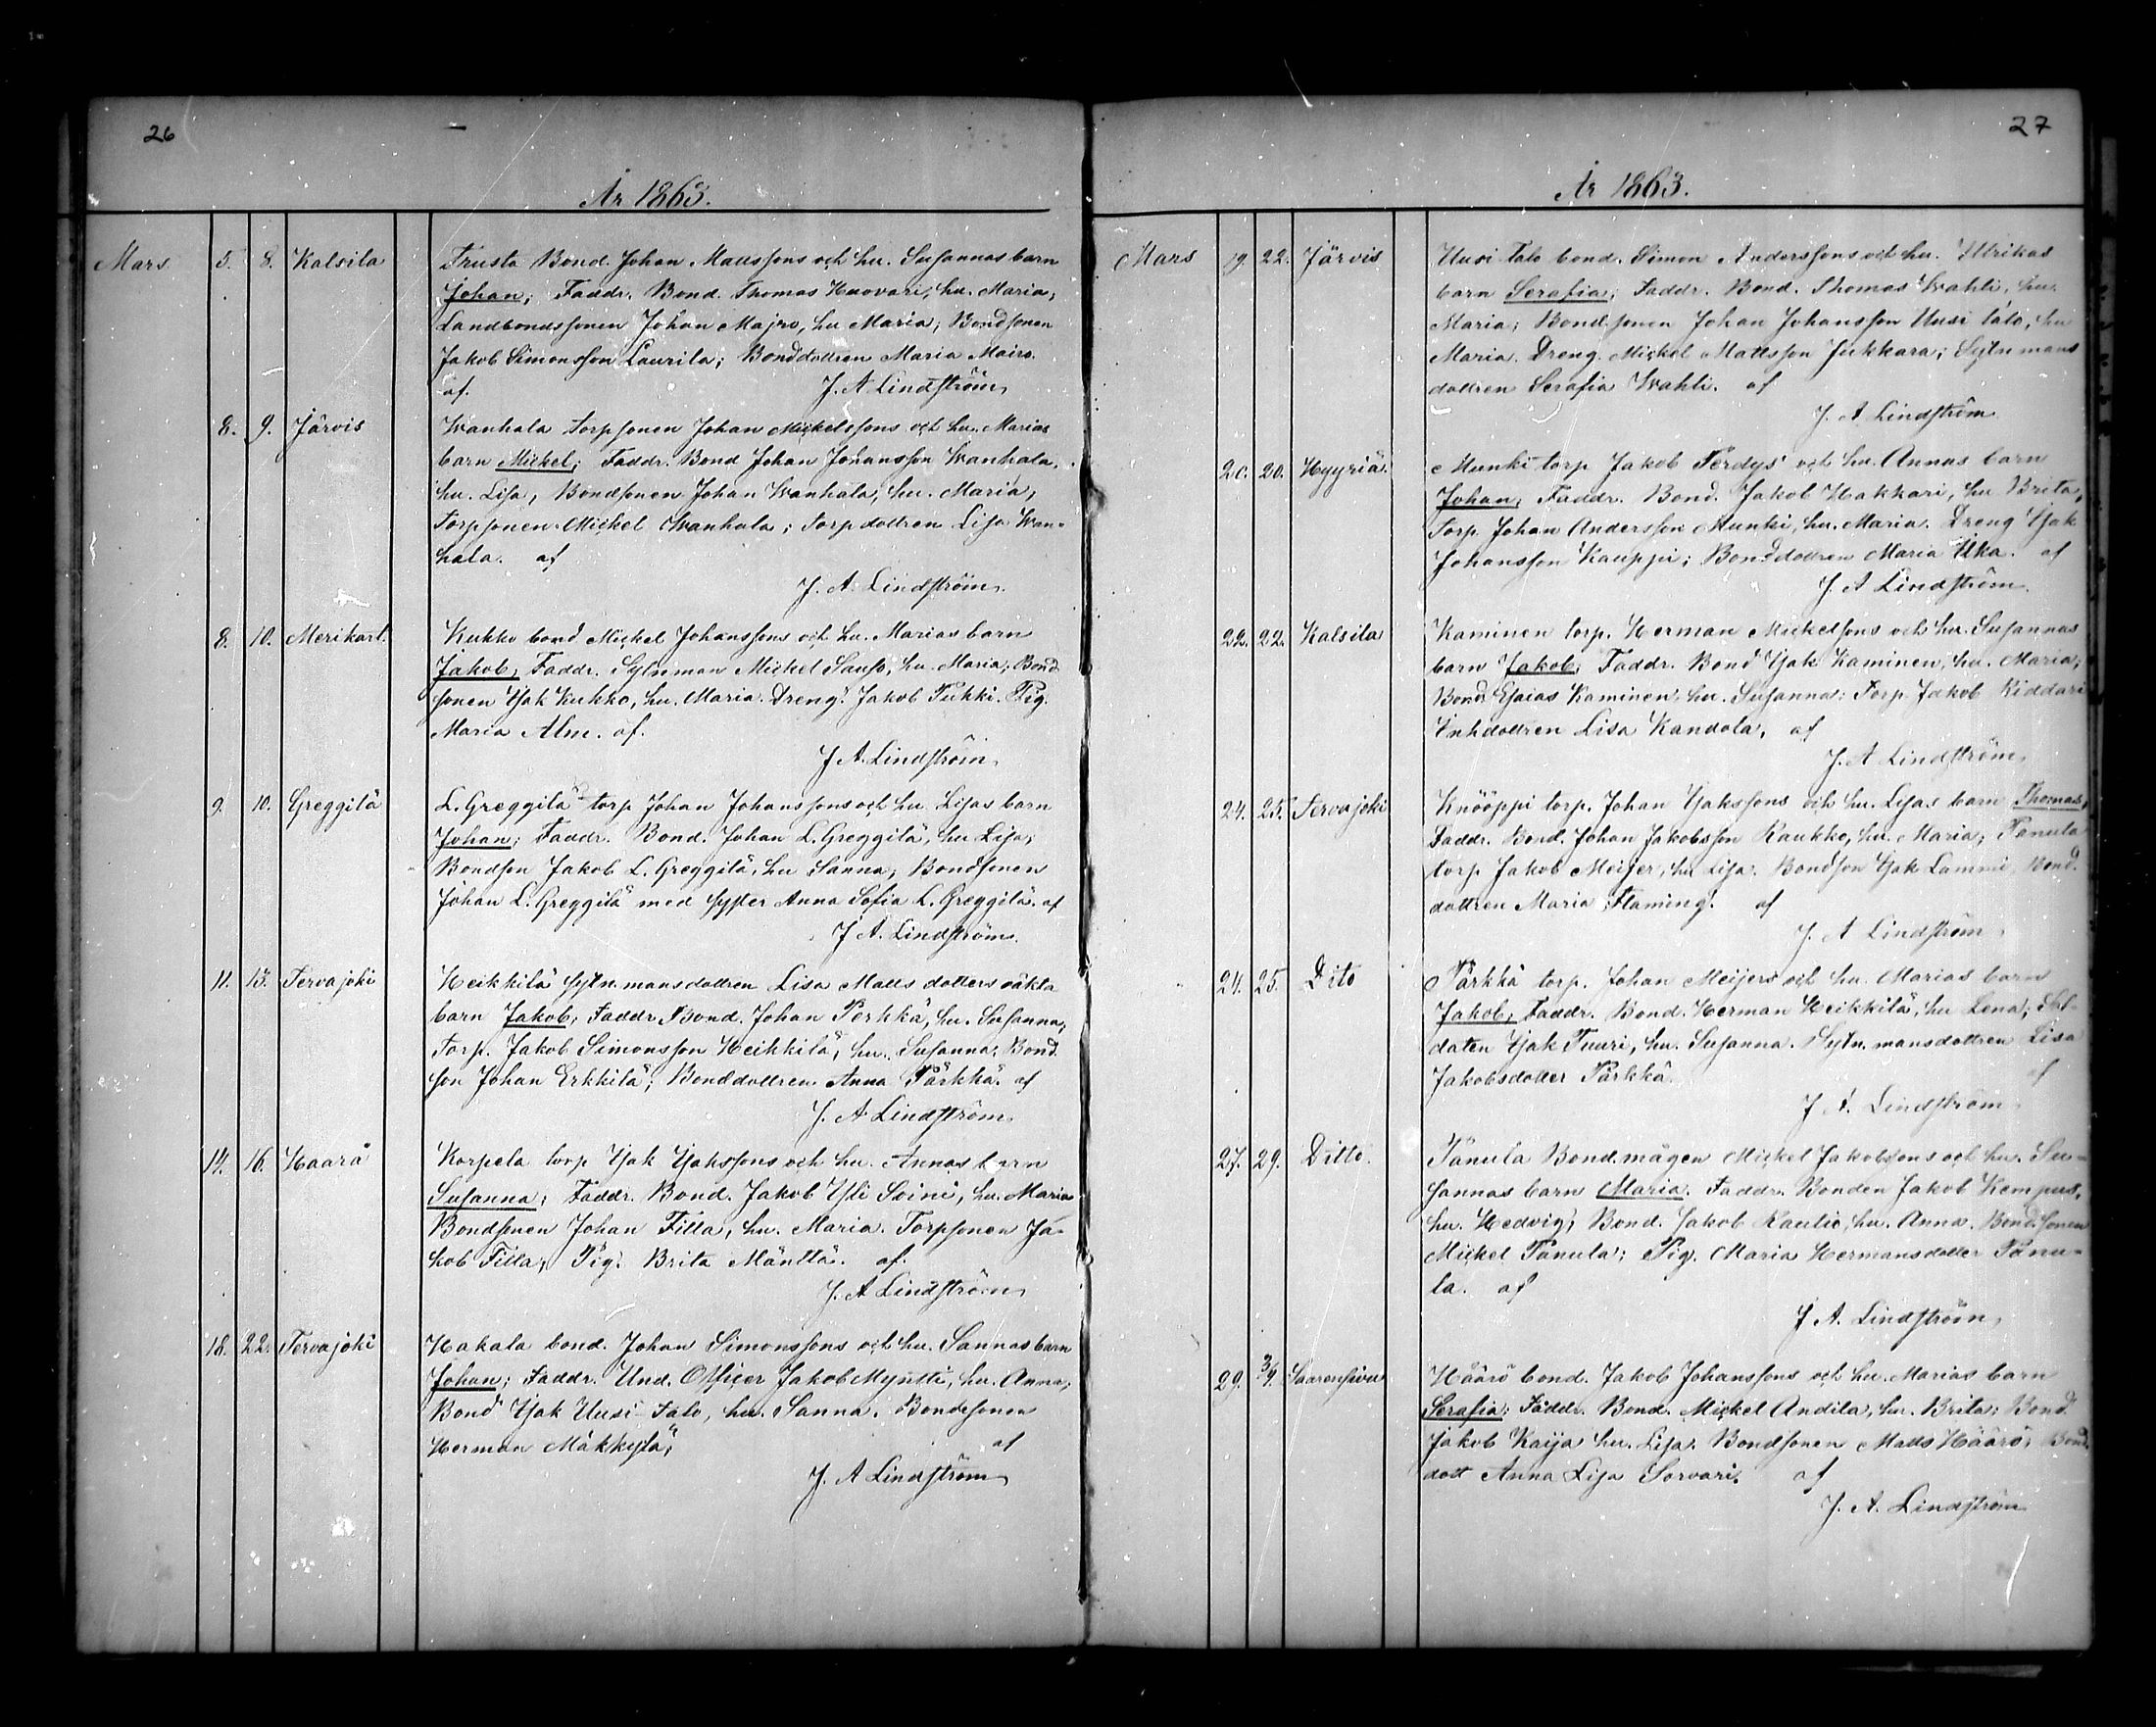 26
År 1863.
Mars 5. 8. Kalsila Trusta Bond. Johan Mattssons och hu. Susannas barn
Johan; Faddr. Bond. Thomas Huovari, hu. Maria,
Landbondssonen Johan Majro, hu Maria; Bondsonen
Jakob Simonsson Laurila; Bonddottren Maria Mairo.
af. J. A. Lindström
8. 9. Järvis Wanhala torpsonen Johan Mickelssons och hu. Marias
barn Mickel; Faddr. Bond Johan Johansson Wanhala,
hu. Lisa, Bondsonen Johan Wanhala, hu. Maria,
Torpsonen Mickel Wanhala; Torpdottren Lisa Wan-
hala. af
J. A. Lindström.
8. 10. Merikart. Kukko bond Mickel Johanssons och hu. Marias barn
Jakob, Faddr. Sytn.man Mickel Sauso, hu. Maria; Bond
sonen Isak Kukko, hu. Maria. Dreng. Jakob Pukki. Pig.
Maria Alm. af.
J. A. Lindström
9. 10. Greggilä L. Greggilä torp Johan Johanssons och hu Lisas barn
Johan; Faddr. Bond. Johan L. Greggilä, hu Lisa;
Bondson Jakob L. Greggilä, hu Sanna, Bondsonen
Johan L. Greggilä med syster Anna Sofia L. Greggilä. af
J. A. Lindström.
11. 13. Tervajoki Heikkilä sytn.mansdottren Lisa Matts dotters oäkta
barn Jakob, Faddr. Bond. Johan Perkkä, hu. Susanna,
Torp. Jakob Simonsson Heikkilä, hu. Susanna, Bond.
son Johan Erkkilä; Bonddottren Anna Pärkkä. af
J. A. Lindström
14. 16. Haarå Korpela torp Isak Isakssons och hu. Annas barn
Susanna; Faddr. Bond. Jakob Yli Soini, hu. Maria
Bondsonen Johan Filla, hu. Maria. Torpsonen Ja-
kob Filla; Pig. Brita Mänttä. af.
J. A. Lindström
18. 22. Tervajoki Hakala bond. Johan Simonssons och hu. Sannas barn
Johan; Faddr. Und. Officer Jakob Myntti, hu. Anna,
Bond Isak Uusi-Talo, hu. Sanna. Bondsonen
Herman Mäkkylä; af
J. A. Lindström
27
År 1863.
Mars 19. 22. Järvis Uusi-Talo bond. Simon Anderssons och hu. Ulrikas
barn Serafia; Faddr. Bond. Thomas Wahli, hu.
Maria; Bondsonen Johan Johansson Uusi talo, hu
Maria. Dreng. Mickel Mattsson Jukkara; Sytn.mans
dottren Serafia Wahli. af
J. A. Lindström
20. 20. Hyyriä. Munki torp Jakob Ferdys och hu. Annas barn
Johan, Faddr. Bond. Jakob Hakkari, hu Brita,
Torp. Johan Andersson Munki, hu. Maria. Dreng Isak
Johansson Kauppi; Bonddottren Maria Ilka. af
J. A. Lindström.
22. 22. Kalsila Kaminen torp. Herman Mickelsons och hu. Susannas
barn Jakob; Faddr. Bond Isak Kaminen, hu. Maria;
Bond. Esaias Kaminen, hu. Susanna; Torp. Jakob Kiddari
Inhdottren Lisa Kandola, af
J. A. Lindström
24. 25. Tervajoki Knööppi torp. Johan Isakssons och hu. Lisas barn Thomas,
Faddr. Bond. Johan Jakobsson Raukko, hu. Maria; Panula
torp. Jakob Meijer, hu Lisa. Bondson Isak Lammi, Bond.
dottren Maria Flaming. af
J. A. Lindström
24. 25. Dito Pärkkä torp. Johan Meijers och hu. Marias barn
Jakob, Faddr. Bond. Herman Heikkilä, hu Lena; Sol-
daten Isak Tuuri, hu. Susanna. Sytn.mansdottren Lisa
Jakobsdotter Pärkkä. af
J. A. Lindström
27. 29. Ditto. Panula Bond.mågen Mickel Jakobssons och hu. Su-
sannas barn Maria. Faddr. Bonden Jakob Kempus,
hu. Hedvig, Bond. Jakob Rautio, hu. Anna. Bondsonen
Mickel Panula; Pig. Maria Hermansdotter Panu-
la. af
J. A. Lindström
29. 3/4. Saarensivu Häärö bond. Jakob Johanssons och hu. Marias barn
Serafia; Faddr. Bond. Mickel Andila, hu. Brita; Bond.
Jakob Kaija hu. Lisa. Bondsonen Matts Häärö; Bond.
dott Anna Lisa Sorvari. af
J. A. Lindström